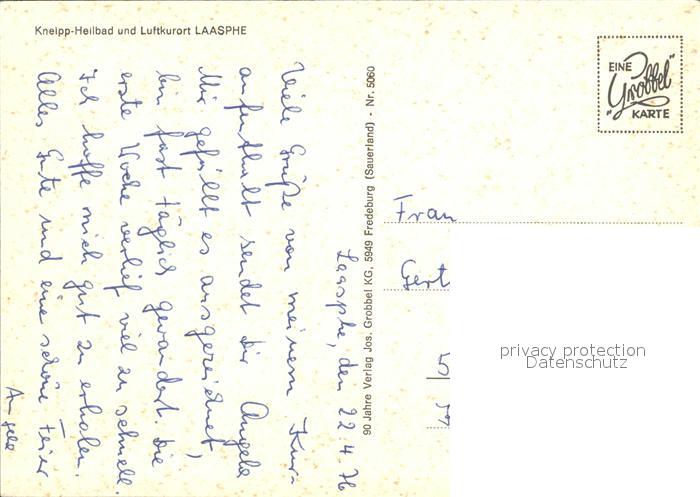 Kneipp-Heilbad und Luftkurort LAASPHE
Laasphe, den 22.4.76
Viele Grüße von meinem Kur-
aufenthalt sendet Dir Angela
Mir gefällt es ausgezeichnet,
bin fast täglich gewandert. Die
erste Woche verlief viel zu schnell.
Ich hoffe mich gut zu erholen.
Alles Gute und eine schöne Feier
Angela
90 Jahre Verlag Jos. Grobbel KG, 5949 Fredeburg (Sauerland) - Nr. 5060
EINE
"Grobbel"
KARTE
Frau
Gert
5
privacy protection
Datenschutz